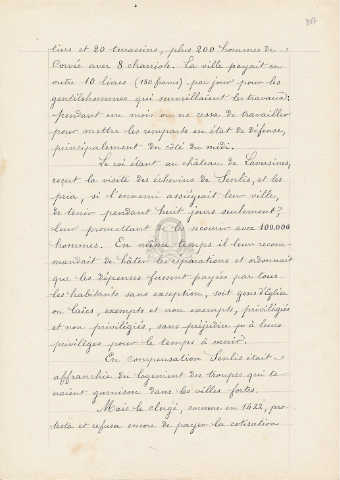 tiers et 20 terrassiers, plus 200 hommes de
corvée avec 8 charriots. La ville payait en
outre 10 livres (150 francs) par jour pour les
gentilshommes qui surveillaient les travaux;
pendant une mois on ne cessa de travailler
pour mettre les remparts en état de défense,
principalement du côté du midi.
Le roi étant au château de Laversines,
reçut la visite des échevins de Senlis, et les
pria, si l'ennemi assiégeait leur ville,
de tenir pendant huit jours seulement,
leur promettant de les secourir avec 100,000
hommes. En même temps il leur recom-
mandait de hâter les réparations et ordonnait
que les dépenses fussent payées par tous
les habitants sans exception, soit gens d'Eglise
ou laïcs, exempts et non exempts, privilégiés
et non privilégiés, sans préjudice à leurs
privilèges pour le temps à venir.
En compensation Senlis était
affranchie du logement des troupes qui te-
naient garnison dans les villes fortes.
Mais le clergé, comme en 1422, pro-
testa et refusa encore de payer la cotisation